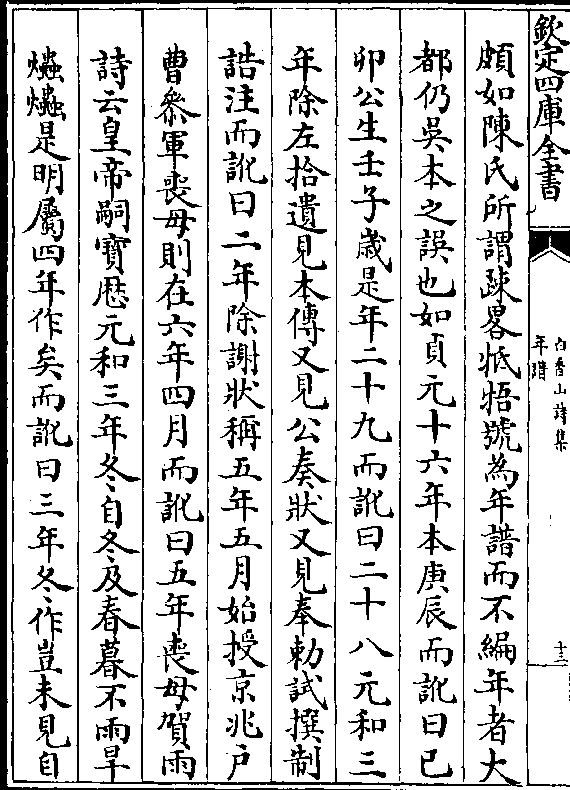 欽定四庫全書
白香山詩集
年譜
十二
頗如陳氏所謂疎畧牴牾號為年譜而不編年者大
都仍吳本之誤也如貞元十六年本庚辰而訛曰已
卯公生壬子歲是年二十九而訛曰二十八元和三
年除左拾遺見本傳又見公奏狀又見奉勅試撰制
誥注而訛曰二年除謝狀稱五年五月始授京兆户
曹叅軍喪母則在六年四月而訛曰五年喪母賀雨
詩云皇帝嗣寶厯元和三年冬自冬及春暮不雨旱
爞爞是明屬四年作矣而訛曰三年冬作豈未見自